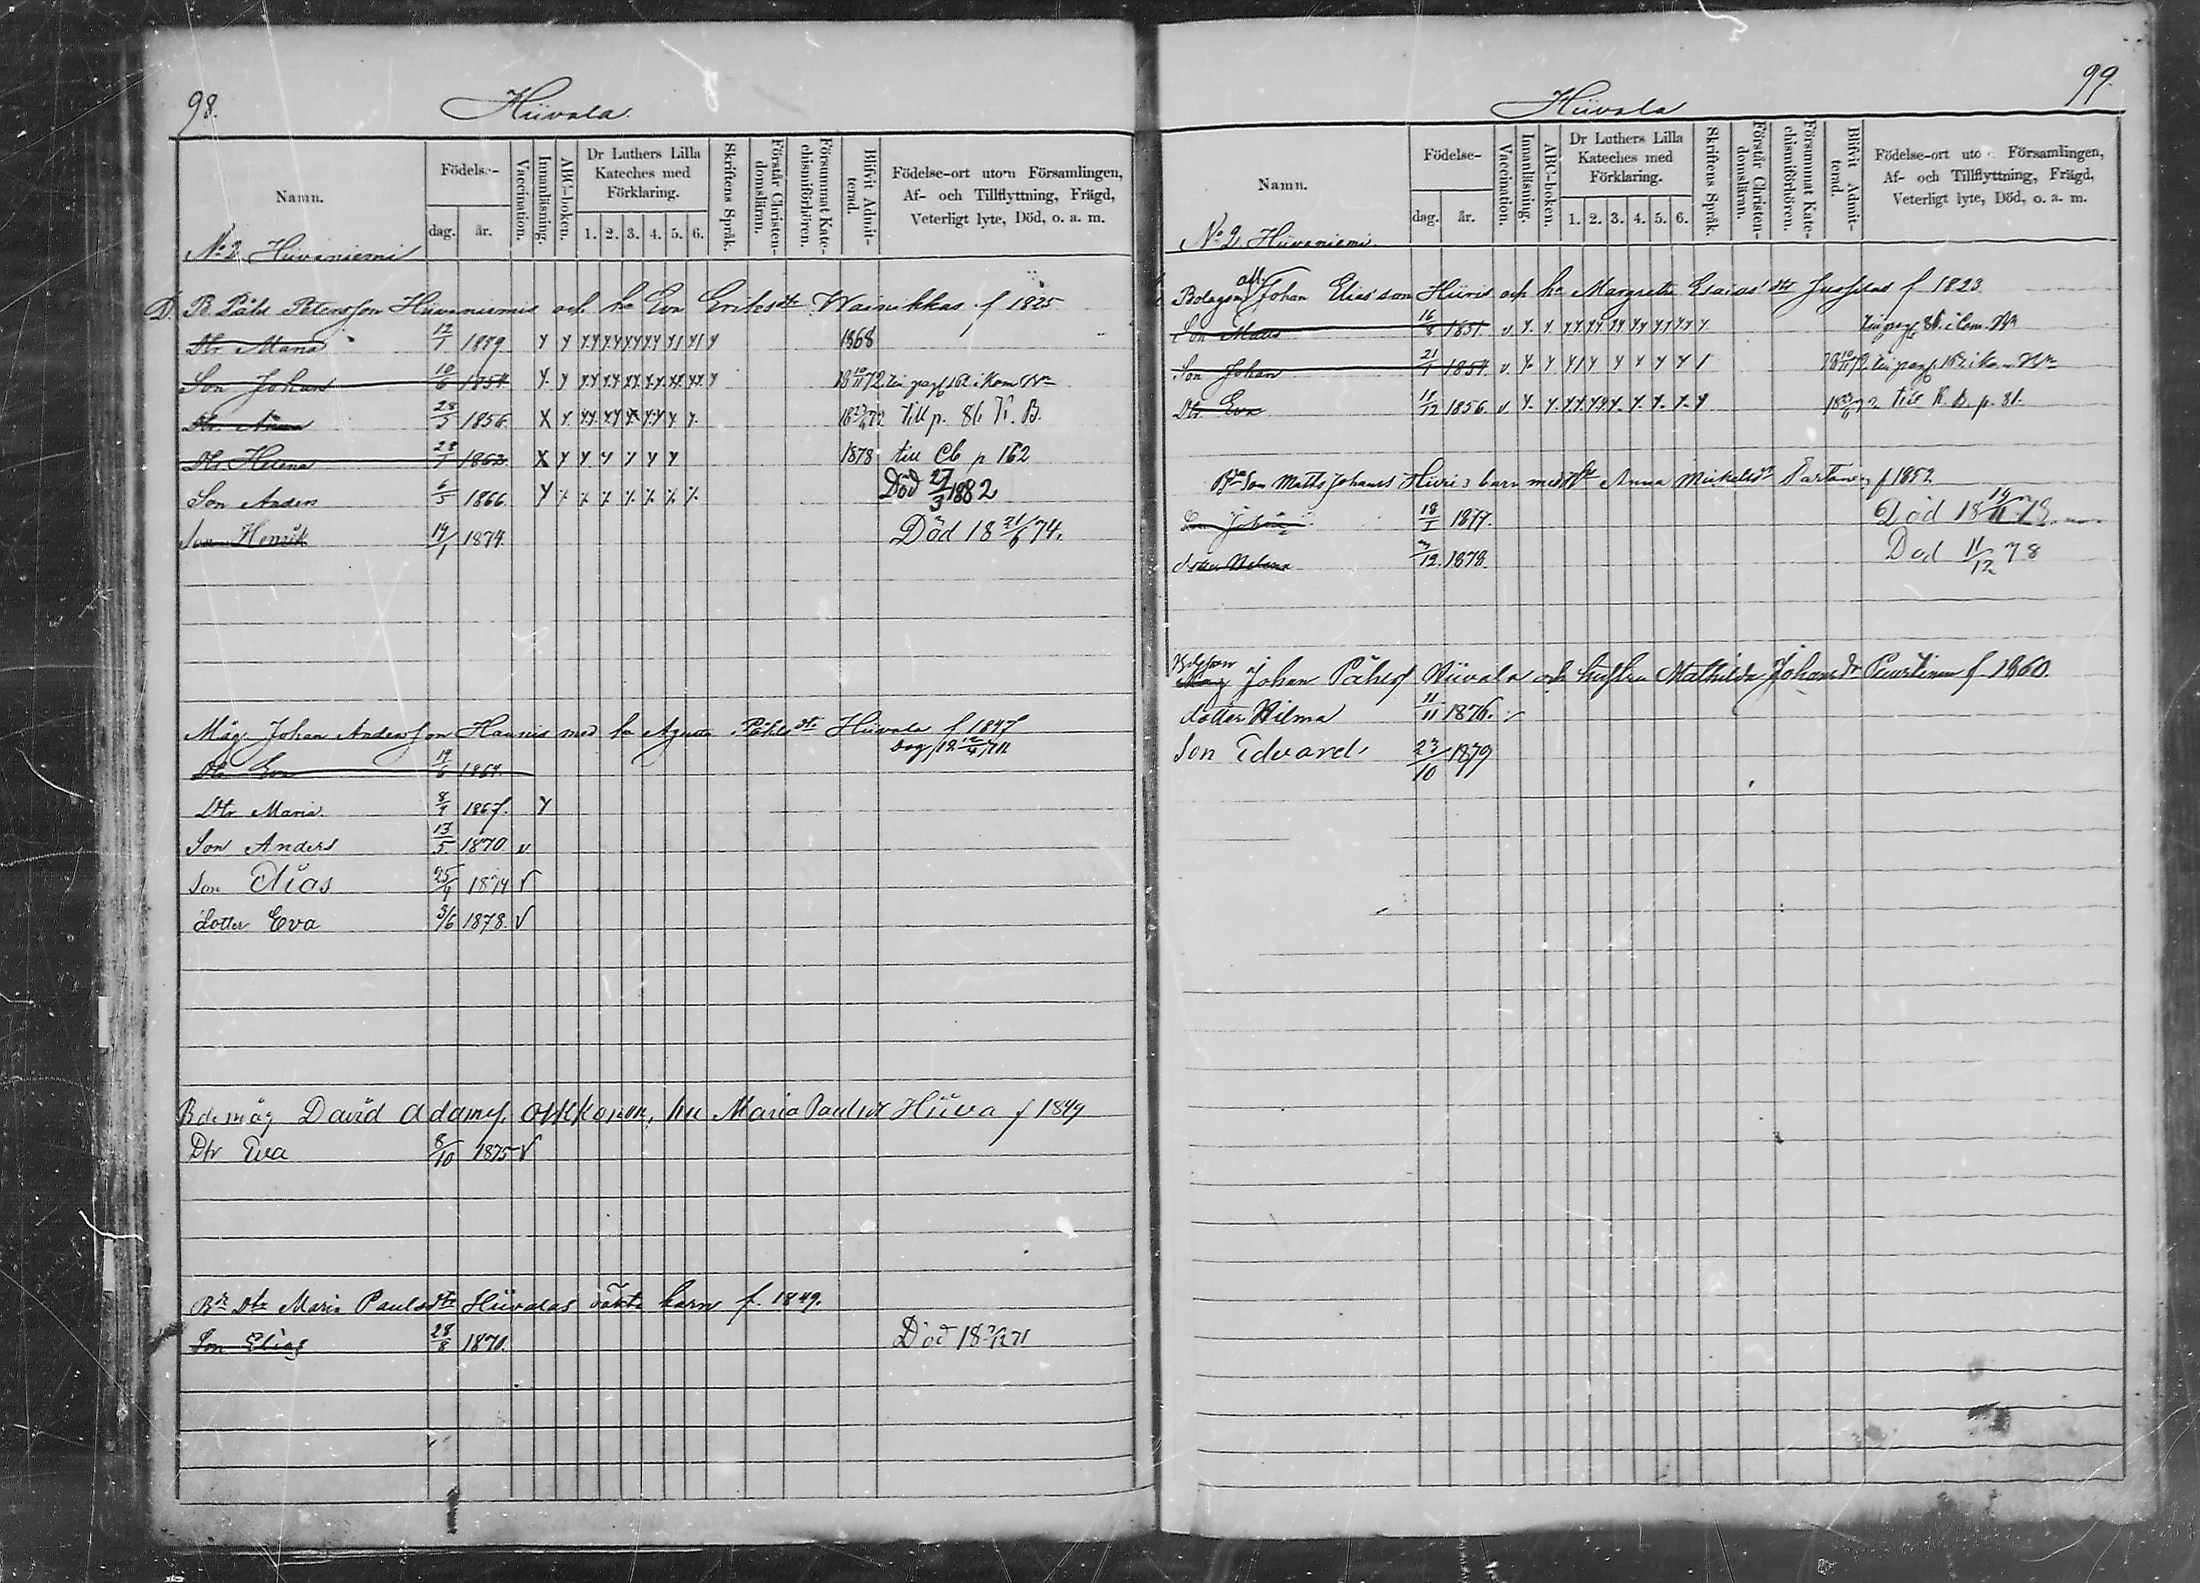 98.
Hiivala.
Namn.
Födelse-
dag.
år.
Vaccination.
Innanläsning.
ABC-boken.
Dr Luthers Lilla Kateches med Förklaring.
1. 2. 3. 4. 5. 6.
Skriftens Språk.
Förstår Christendomsläran.
Försummat Katechismiförhören.
Blifvit Admitterad.
Födelse-ort utom Församlingen,
Af- och Tillflyttning, Frägd,
Veterligt lyte, Död, o. a. m.
No 2 Hiivaniemi
D. B. Påhl Petersson Hiivaniemis och hu Eva Eriksdtr Wainikkas f 1825
Dtr Maria 12/1 1849 1868
Son Johan 10/6 1854
Dtr 28/5 1856 till p. 86 K. B.
Dtr Helena 28/1 1862 1878 till Cb p 162
Son Anders 6/5 1866 Död 27/3 1882
Son Henrik 19/1 1874 Död 18 21/6 74.
Måg. Johan Andersson Hannis med hu Agneta Påhlsdtr Hiivala f 1847
Dtr Eva 19/6 1864
Dtr Maria 8/4 1867. Y
Son Anders 13/5 1870 v
Son Elias 25/4 1874 V
dotter Eva 3/6 1878. V
Bde måg David Adams. hu Maria Paulsdr Hiiva f 1849
Dtr Eva 8/10 1875 V
Bde Dtr Maria Paulsdtr Hiivalas oäkta barn f. 1849.
Son Elias 28/8 1870. Död 18 71
99.
Hiivala
Namn.
Födelse-
dag.
år.
Vaccination.
Innanläsning.
ABC-boken.
Dr Luthers Lilla Kateches med Förklaring.
1. 2. 3. 4. 5. 6.
Skriftens Språk.
Förstår Christendomsläran.
Försummat Katechismiförhören.
Blifvit Admitterad.
Födelse-ort utom Församlingen,
Af- och Tillflyttning, Frägd,
Veterligt lyte, Död, o. a. m.
No 2 Hiivaniemi
Bolagsm Johan Eliasson Hiiris och hu Margreta Esaiasdtr Jussilas f 1823
Son Matts 16/8 1851
Son Johan 21/1 1854
Dtr Eva 11/12 1856. till K. B. p. 81.
Bde Son Matts Johanss Hiiris barn med hu Anna Mickelsdr Partanen f 1852
Son Johan 18/1 1877. Död 18 19/11 78
dotter Helena 12. 1878. Död 11/12 78
Bolagsman Johan Påhlss Hiivala och hustru Mathilda Johansdr Puurtinen f. 1860.
dotter Hilma 11/11 1876.
Son Edvard 23/10 1879